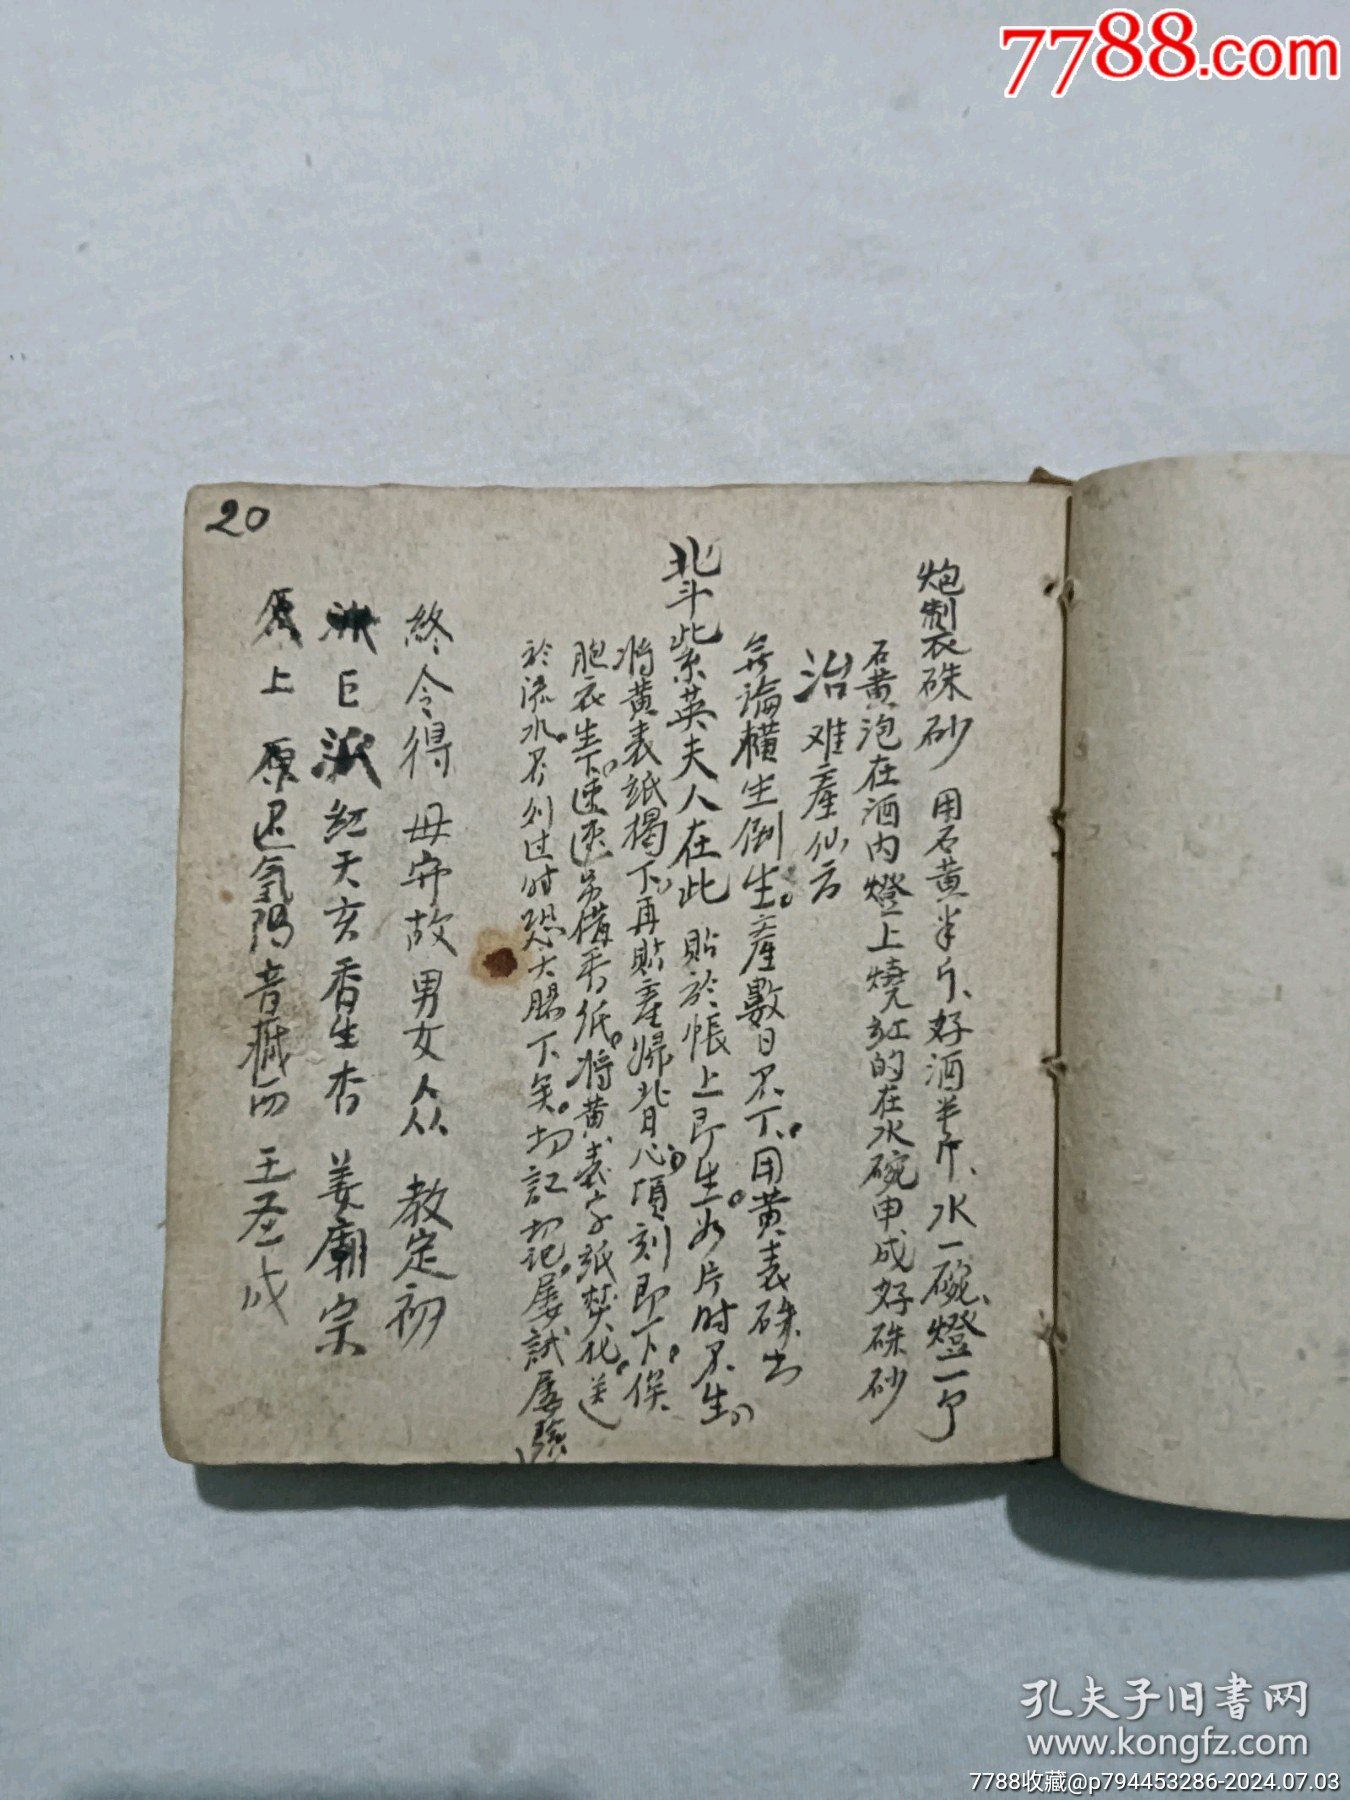 7788.com
20
炮制衣硃砂 用石黄半斤、好酒半斤、水一碗、燈一个
石黄泡在酒内燈上燒红的在水碗申成好硃砂
治难產仙方
無論横生倒生。產數日不下、用黄表硃书
北斗紫英夫人在此 貼於帳上即生。如片时不生。
将黄表紙揭下、再貼產婦北背心、頃刻即下、俟
胞衣生下、速速另備香纸。将黄表字紙焚化。送
於流水。不列过时恐大腸下矣。切記切記。屡試屡驗
終令得 毋 故 男女众 教定初
巨 红天亥香生杏 姜廟宗
上 原 音 王圣成
孔夫子旧書网
www.kongfz.com
7788收藏@p794453286-2024.07.03